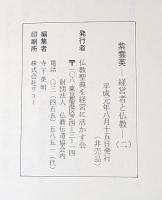 紫雲英 経営者と仏教 (二)
平成元年八月十五日発行
(非売品)
発行者 仏教聖典を経営に活かす会
〒一〇八 東京都港区芝四ー三ー一四
財団法人 仏教伝道協会内
電話 〇三(四五五)五八五一(代)
編集者 寺下英明
印刷所 株式会社リコー